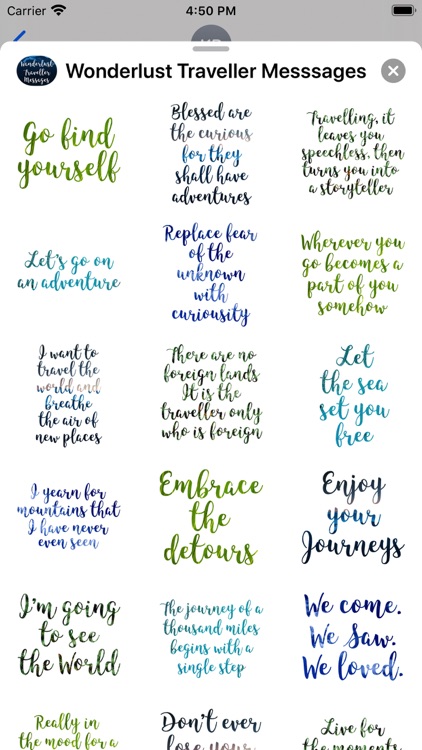 Carrier 4:50 PM
Wonderlust
Traveller
Messages
Wonderlust Traveller Messsages
Go find
yourself
Blessed are
the curious
for they
shall have
adventures
Travelling, it
leaves you
speechless, then
turns you into
a storyteller
Let's go on
an adventure
Replace fear
of the
unknown
with
curiousity
Wherever you
go becomes a
part of you
somehow
I want to
travel the
world and
breathe
the air of
new places
There are no
foreign lands
It is the
traveller only
who is foreign
Let
the sea
set you
free
I yearn for
mountains that
I have never
even seen
Embrace
the
detours
Enjoy
your
Journeys
I'm going
to see
the World
The journey of a
thousand miles
begins with a
single step
We come.
We Saw.
We loved.
Really in
the mood for a
Don't ever
lose your
Live for
the moments